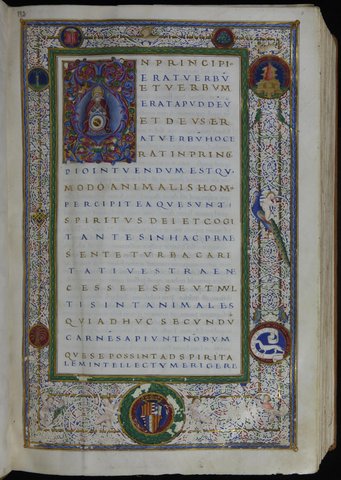 N PRINCIPI
ERAT VERBŪ
ET VERBUM
ERAT APUD DEŪ
ET DEUS ER
AT VERBŪ HOC E
RAT IN PRINC
PIO INTUENDUM EST QU
MODO ANIMALIS HOM
PERCIPIT EA QUE SUNT
SPIRITUS DEI ET COGI
TANTES IN HAC PRAE
SENTE TURBA CARI
TATI VESTRAE N
CESSE ESSE UT MUL
TI SINT ANIMALES
QUI ADHUC SECUNDU
CARNE SAPIUNT NODUM
QUE SE POSSINT AD SPIRITA
LEM INTELLECTUM ERIGERE